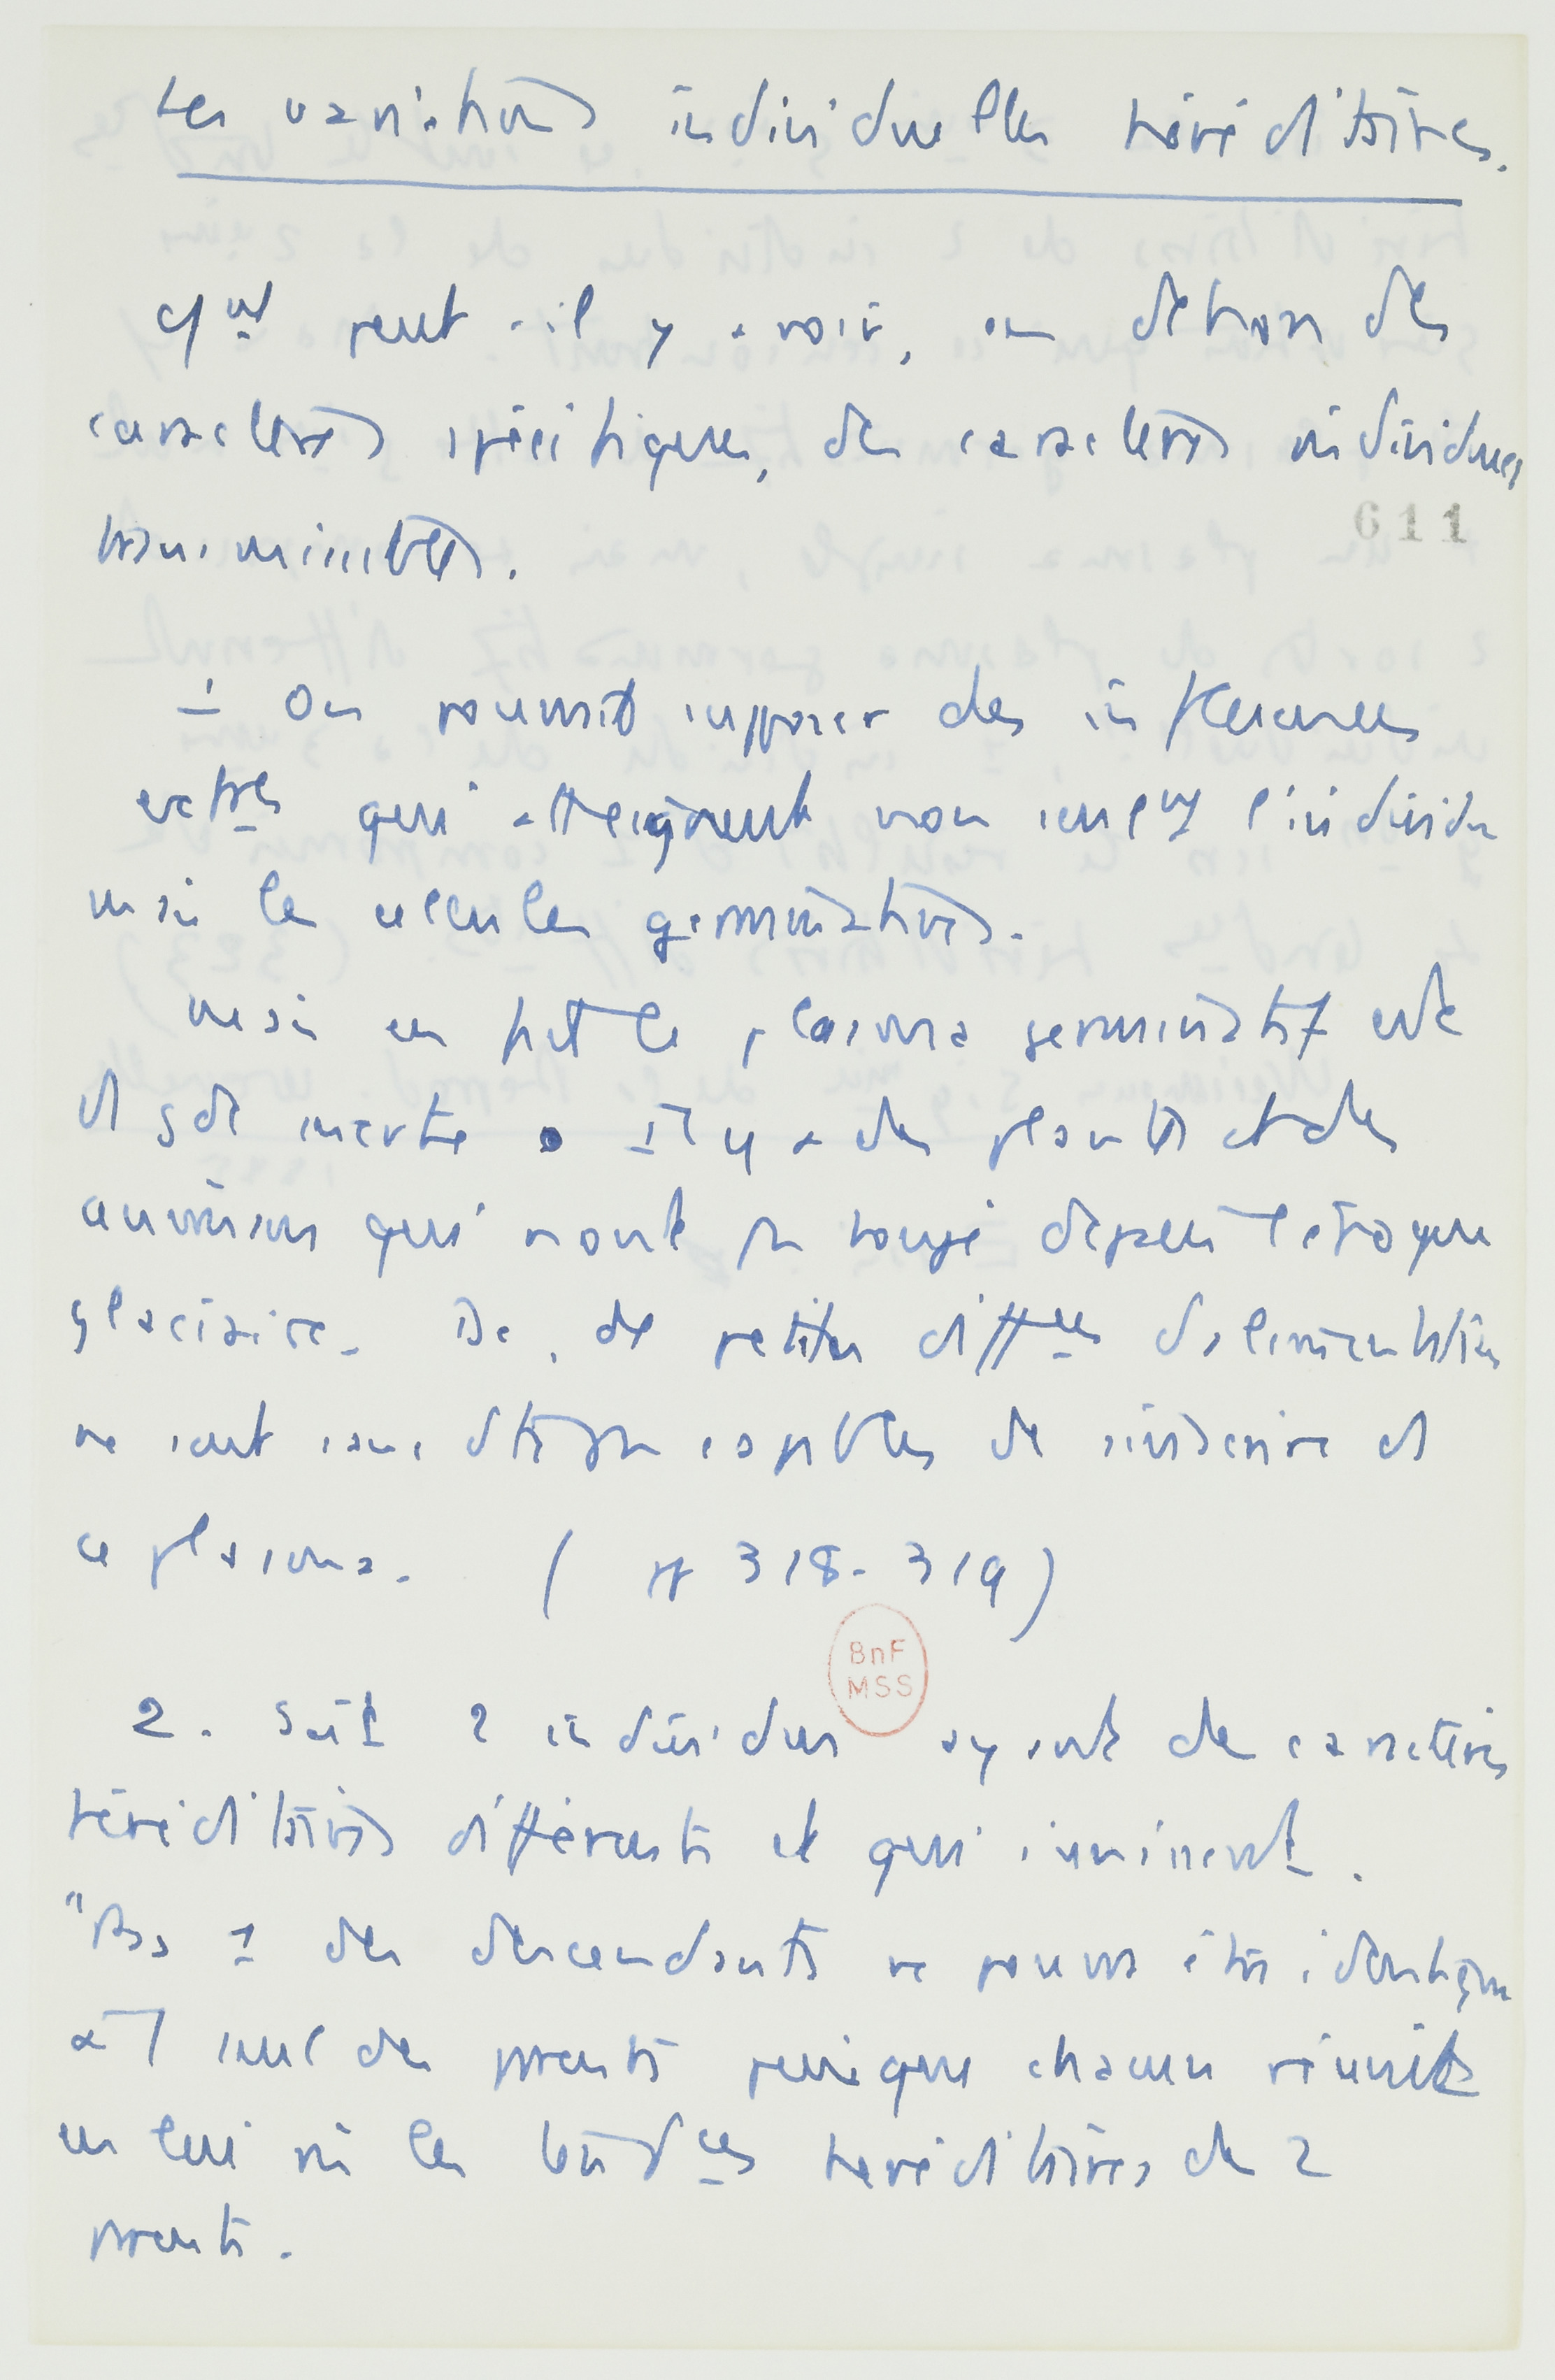 Les variations individuelles héréditaires.
Cmt peut-il y avoir, en dehors des
caractères spécifiques, des caractères individuels
transmissibles.
611
1 On pourrait supposer des influences
extres qui atteignent non seulmt l'individu
mais les cellules germinatives.
Mais en fait le plasma germinatif est
d gde inertie. Il y a des plantes et des
animaux qui n'ont pas bougé depuis l'époque
glaciaire. Dc, de petites difftes d'alimentation
ne sont pas capables de
ce plasma. (pp 318-319)
BnF
MSS
2. Soit 2 individus ayant des caractères
héréditaires différents et qui s'unissent.
"Pas 1 des descendants ne pourra être identique
à l'seul des parents puisque chacun réunit
en lui les tendces héréditaires des 2
parents.